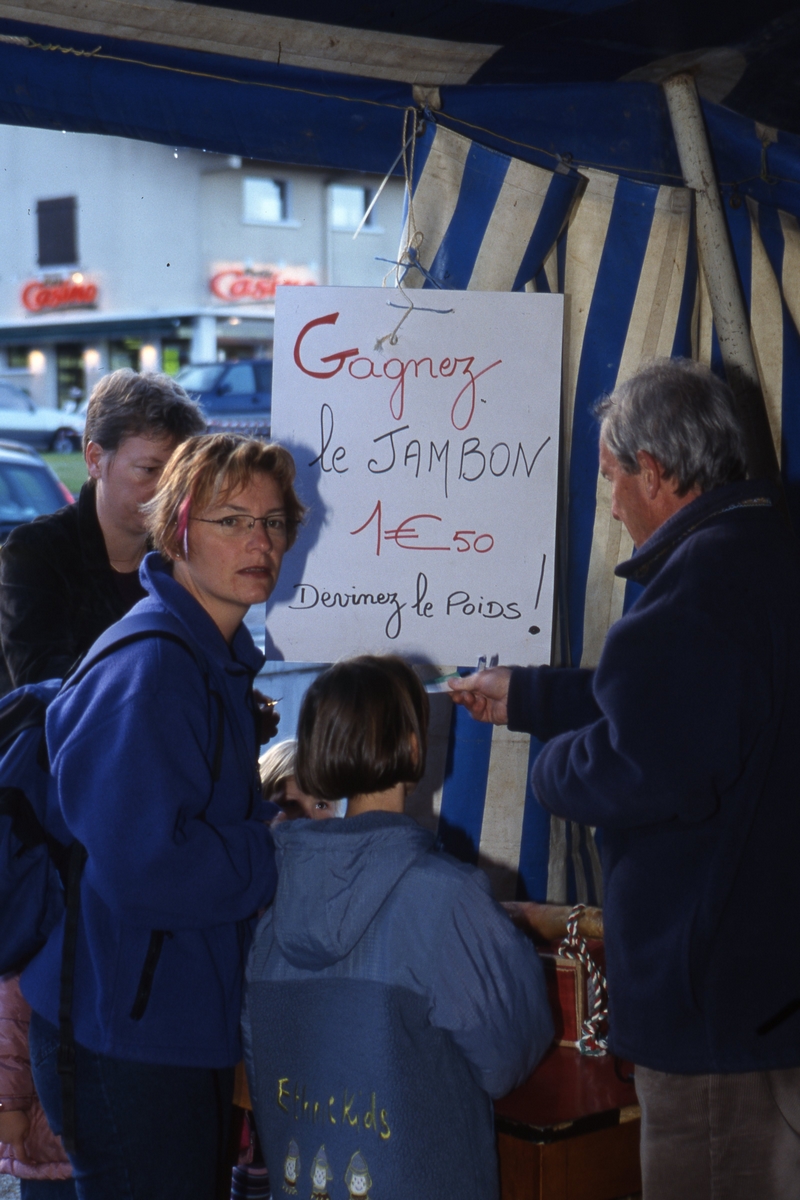 Casino
Casino
Gagnez
le JAMBON
1€50
Devinez le POIDS !